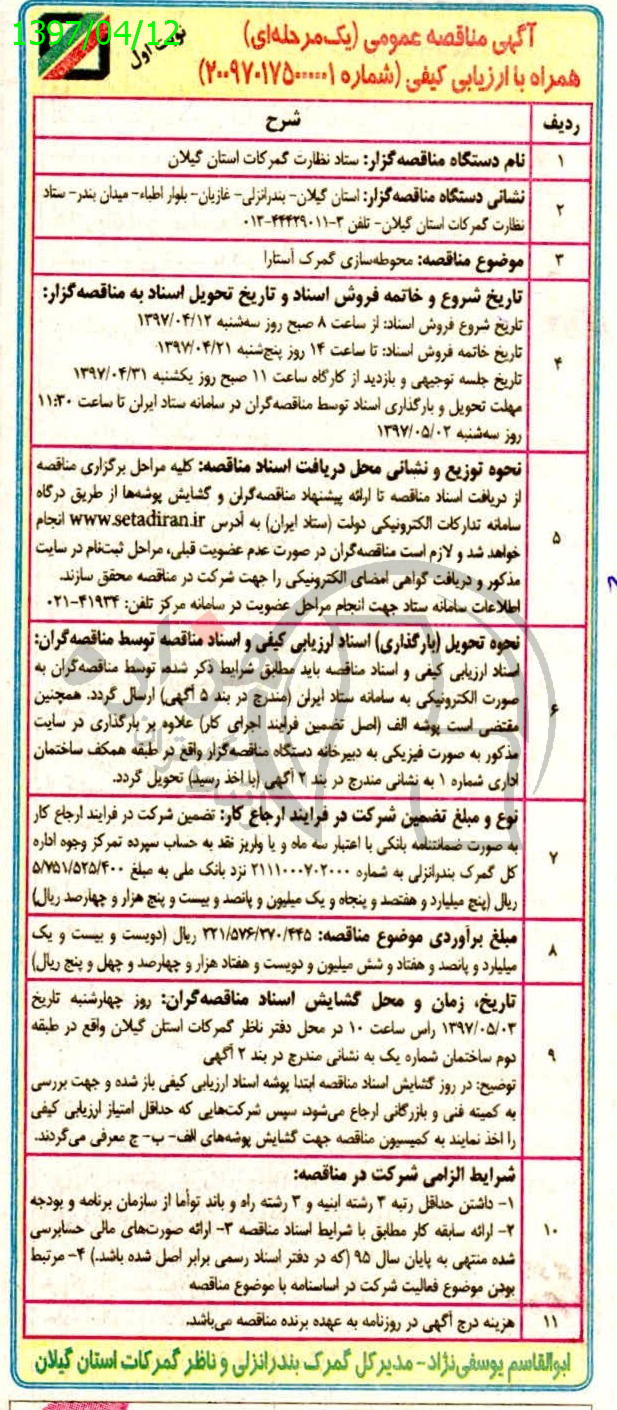 1397/04/12
نوبت اول
آگهی مناقصه عمومی (یک‌مرحله‌ای)
همراه با ارزیابی کیفی (شماره ۲۰۰۹۷۰۱۷۵۰۰۰۰۰۱)
ردیف شرح
۱ نام دستگاه مناقصه‌گزار: ستاد نظارت گمرکات استان گیلان
۲ نشانی دستگاه مناقصه‌گزار: استان گیلان- بندرانزلی- غازیان- بلوار اطباء- میدان بندر- ستاد
نظارت گمرکات استان گیلان- تلفن ۳-۴۴۴۲۹۰۱۱-۰۱۳
۳ موضوع مناقصه: محوطه‌سازی گمرک آستارا
۴ تاریخ شروع و خاتمه فروش اسناد و تاریخ تحویل اسناد به مناقصه‌گزار:
تاریخ شروع فروش اسناد: از ساعت ۸ صبح روز سه‌شنبه ۱۳۹۷/۰۴/۱۲
تاریخ خاتمه فروش اسناد: تا ساعت ۱۴ روز پنج‌شنبه ۱۳۹۷/۰۴/۲۱
تاریخ جلسه توجیهی و بازدید از کارگاه ساعت ۱۱ صبح روز یکشنبه ۱۳۹۷/۰۴/۳۱
مهلت تحویل و بارگذاری اسناد توسط مناقصه‌گران در سامانه ستاد ایران تا ساعت ۱۱:۳۰
روز سه‌شنبه ۱۳۹۷/۰۵/۰۲
۵ نحوه توزیع و نشانی محل دریافت اسناد مناقصه: کلیه مراحل برگزاری مناقصه
از دریافت اسناد مناقصه تا ارائه پیشنهاد مناقصه‌گران و گشایش پوشه‌ها از طریق درگاه
سامانه تدارکات الکترونیکی دولت (ستاد ایران) به آدرس www.setadiran.ir انجام
خواهد شد و لازم است مناقصه‌گران در صورت عدم عضویت قبلی، مراحل ثبت‌نام در سایت
مذکور و دریافت گواهی امضای الکترونیکی را جهت شرکت در مناقصه محقق سازند.
اطلاعات سامانه ستاد جهت انجام مراحل عضویت در سامانه مرکز تلفن: ۴۱۹۳۴-۰۲۱
۶ نحوه تحویل (بارگذاری) اسناد ارزیابی کیفی و اسناد مناقصه توسط مناقصه‌گران:
اسناد ارزیابی کیفی و اسناد مناقصه باید مطابق شرایط ذکر شده، توسط مناقصه‌گران به
صورت الکترونیکی به سامانه ستاد ایران (مندرج در بند ۵ آگهی) ارسال گردد. همچنین
مقتضی است پوشه الف (اصل تضمین فرایند اجرای کار) علاوه بر بارگذاری در سایت
مذکور به صورت فیزیکی به دبیرخانه دستگاه مناقصه‌گزار واقع در طبقه همکف ساختمان
اداری شماره ۱ به نشانی مندرج در بند ۲ آگهی (با اخذ رسید) تحویل گردد.
۷ نوع و مبلغ تضمین شرکت در فرایند ارجاع کار: تضمین شرکت در فرایند ارجاع کار
به صورت ضمانتنامه بانکی با اعتبار سه ماه و یا واریز نقد به حساب سپرده تمرکز وجوه اداره
کل گمرک بندرانزلی به شماره ۲۱۱۱۰۰۰۷۰۲۰۰۰ نزد بانک ملی به مبلغ ۵/۷۵۱/۵۲۵/۴۰۰
ریال (پنج میلیارد و هفتصد و پنجاه و یک میلیون و پانصد و بیست و پنج هزار و چهارصد ریال)
۸ مبلغ برآوردی موضوع مناقصه: ۲۲۱/۵۷۶/۲۷۰/۴۴۵ ریال (دویست و بیست و یک
میلیارد و پانصد و هفتاد و شش میلیون و دویست و هفتاد هزار و چهارصد و چهل و پنج ریال)
۹ تاریخ، زمان و محل گشایش اسناد مناقصه‌گران: روز چهارشنبه تاریخ
۱۳۹۷/۰۵/۰۳ راس ساعت ۱۰ در محل دفتر ناظر گمرکات استان گیلان واقع در طبقه
دوم ساختمان شماره یک به نشانی مندرج در بند ۲ آگهی
توضیح: در روز گشایش اسناد مناقصه ابتدا پوشه اسناد ارزیابی کیفی باز شده و جهت بررسی
به کمیته فنی و بازرگانی ارجاع می‌شود، سپس شرکت‌هایی که حداقل امتیاز ارزیابی کیفی
را اخذ نمایند به کمیسیون مناقصه جهت گشایش پوشه‌های الف- ب- ج معرفی می‌گردند.
۱۰ شرایط الزامی شرکت در مناقصه:
۱- داشتن حداقل رتبه ۳ رشته ابنیه و ۳ رشته راه و باند تواما از سازمان برنامه و بودجه
۲- ارائه سابقه کار مطابق با شرایط اسناد مناقصه ۳- ارائه صورت‌های مالی حسابرسی
شده منتهی به پایان سال ۹۵ (که در دفتر اسناد رسمی برابر اصل شده باشد.) ۴- مرتبط
بودن موضوع فعالیت شرکت در اساسنامه با موضوع مناقصه
۱۱ هزینه درج آگهی در روزنامه به عهده برنده مناقصه می‌باشد.
ابوالقاسم یوسفی‌نژاد - مدیرکل گمرک بندرانزلی و ناظر گمرکات استان گیلان